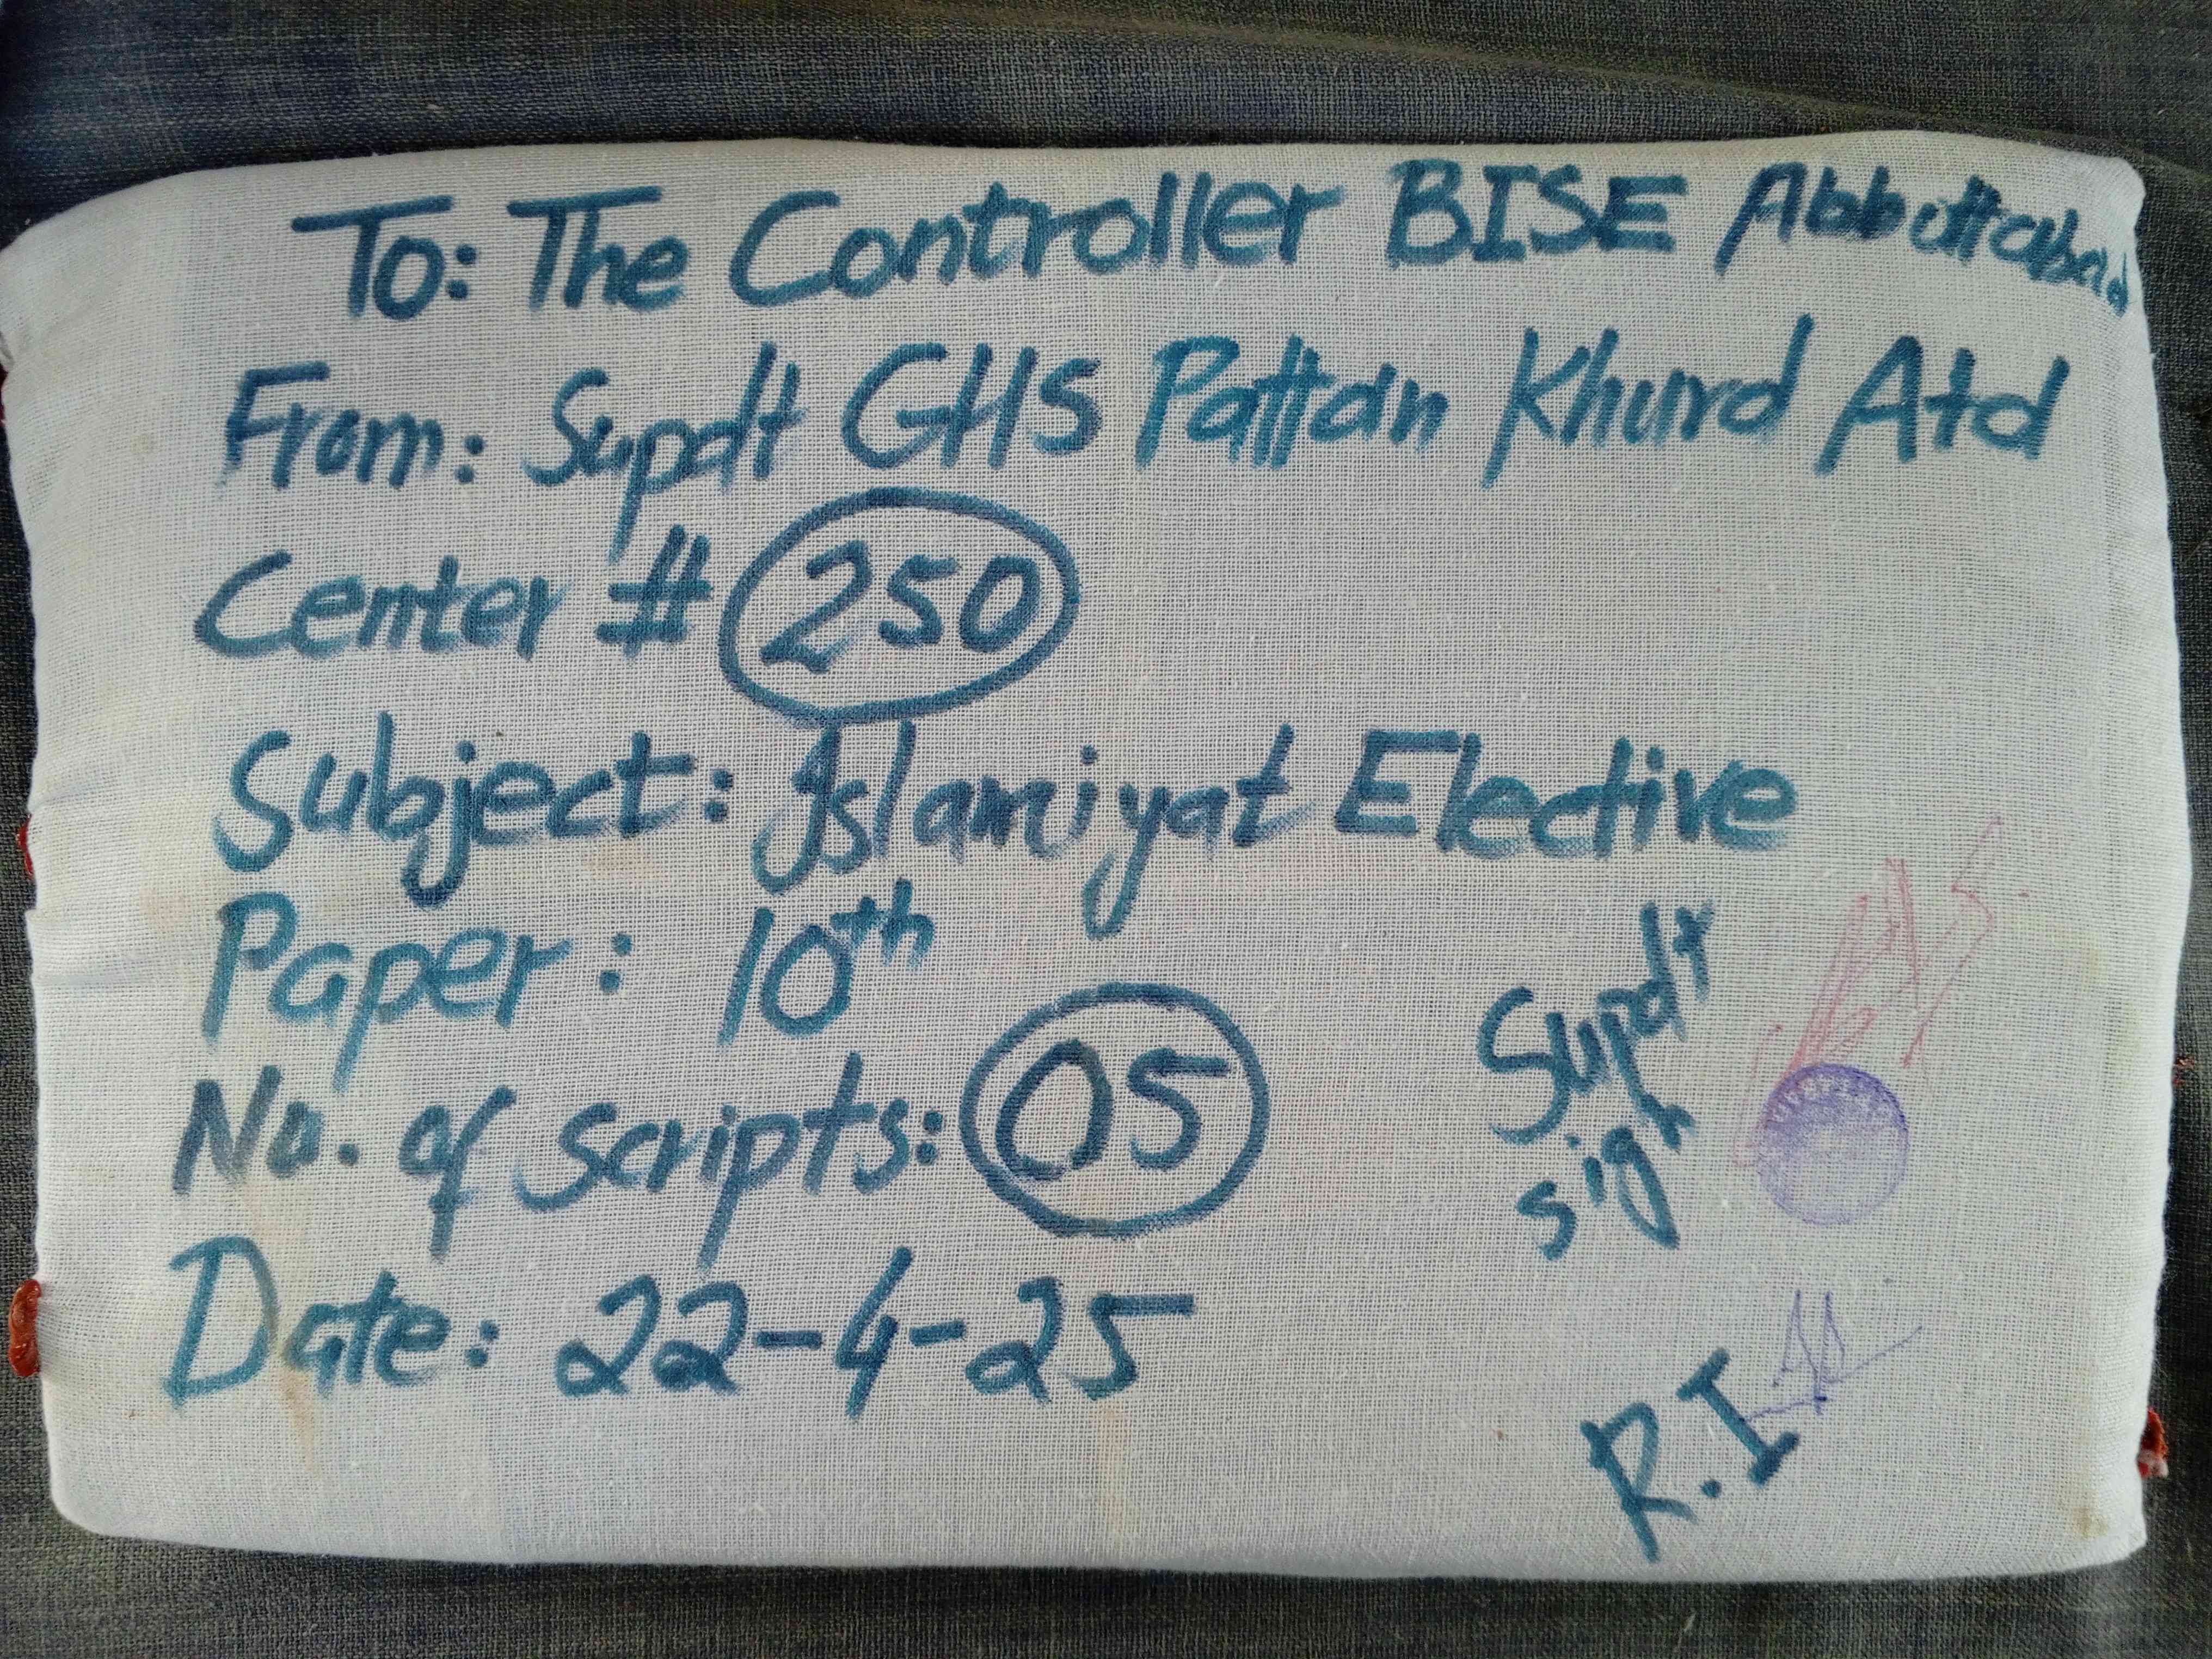 To: The Controller BISE Abbottabad
From: Supdt GHS Pattan Khurd Atd
Center # 250
Subject: Islamiyat Elective
Paper: 10th
No. of scripts: 05
Date: 22-4-25
Supdt
sign
R.I